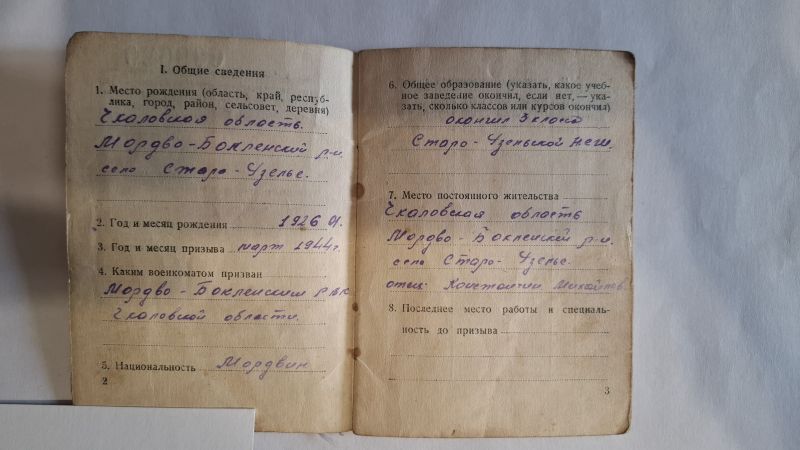 I. Общие сведения
1. Место рождения (область, край, респуб-
лика, город, район, сельсовет, деревня)
Чкаловская область.
Мордво-Бокленский р-н.
село Старо-Узелье.
2. Год и месяц рождения 1926 01.
3. Год и месяц призыва март 1944 г.
4. Каким военкоматом призван
Мордво-Бокленским РВК
Чкаловской области.
5. Национальность Мордвин
2
6. Общее образование (указать, какое учеб-
ное заведение окончил, если нет, — ука-
зать, сколько классов или курсов окончил)
окончил 3 класа
Старо-Узельской
7. Место постоянного жительства
Чкаловская область
Мордво-Бокленский р-н.
село Старо-Узелье.
отец: Константин
8. Последнее место работы и специаль-
ность до призыва
3